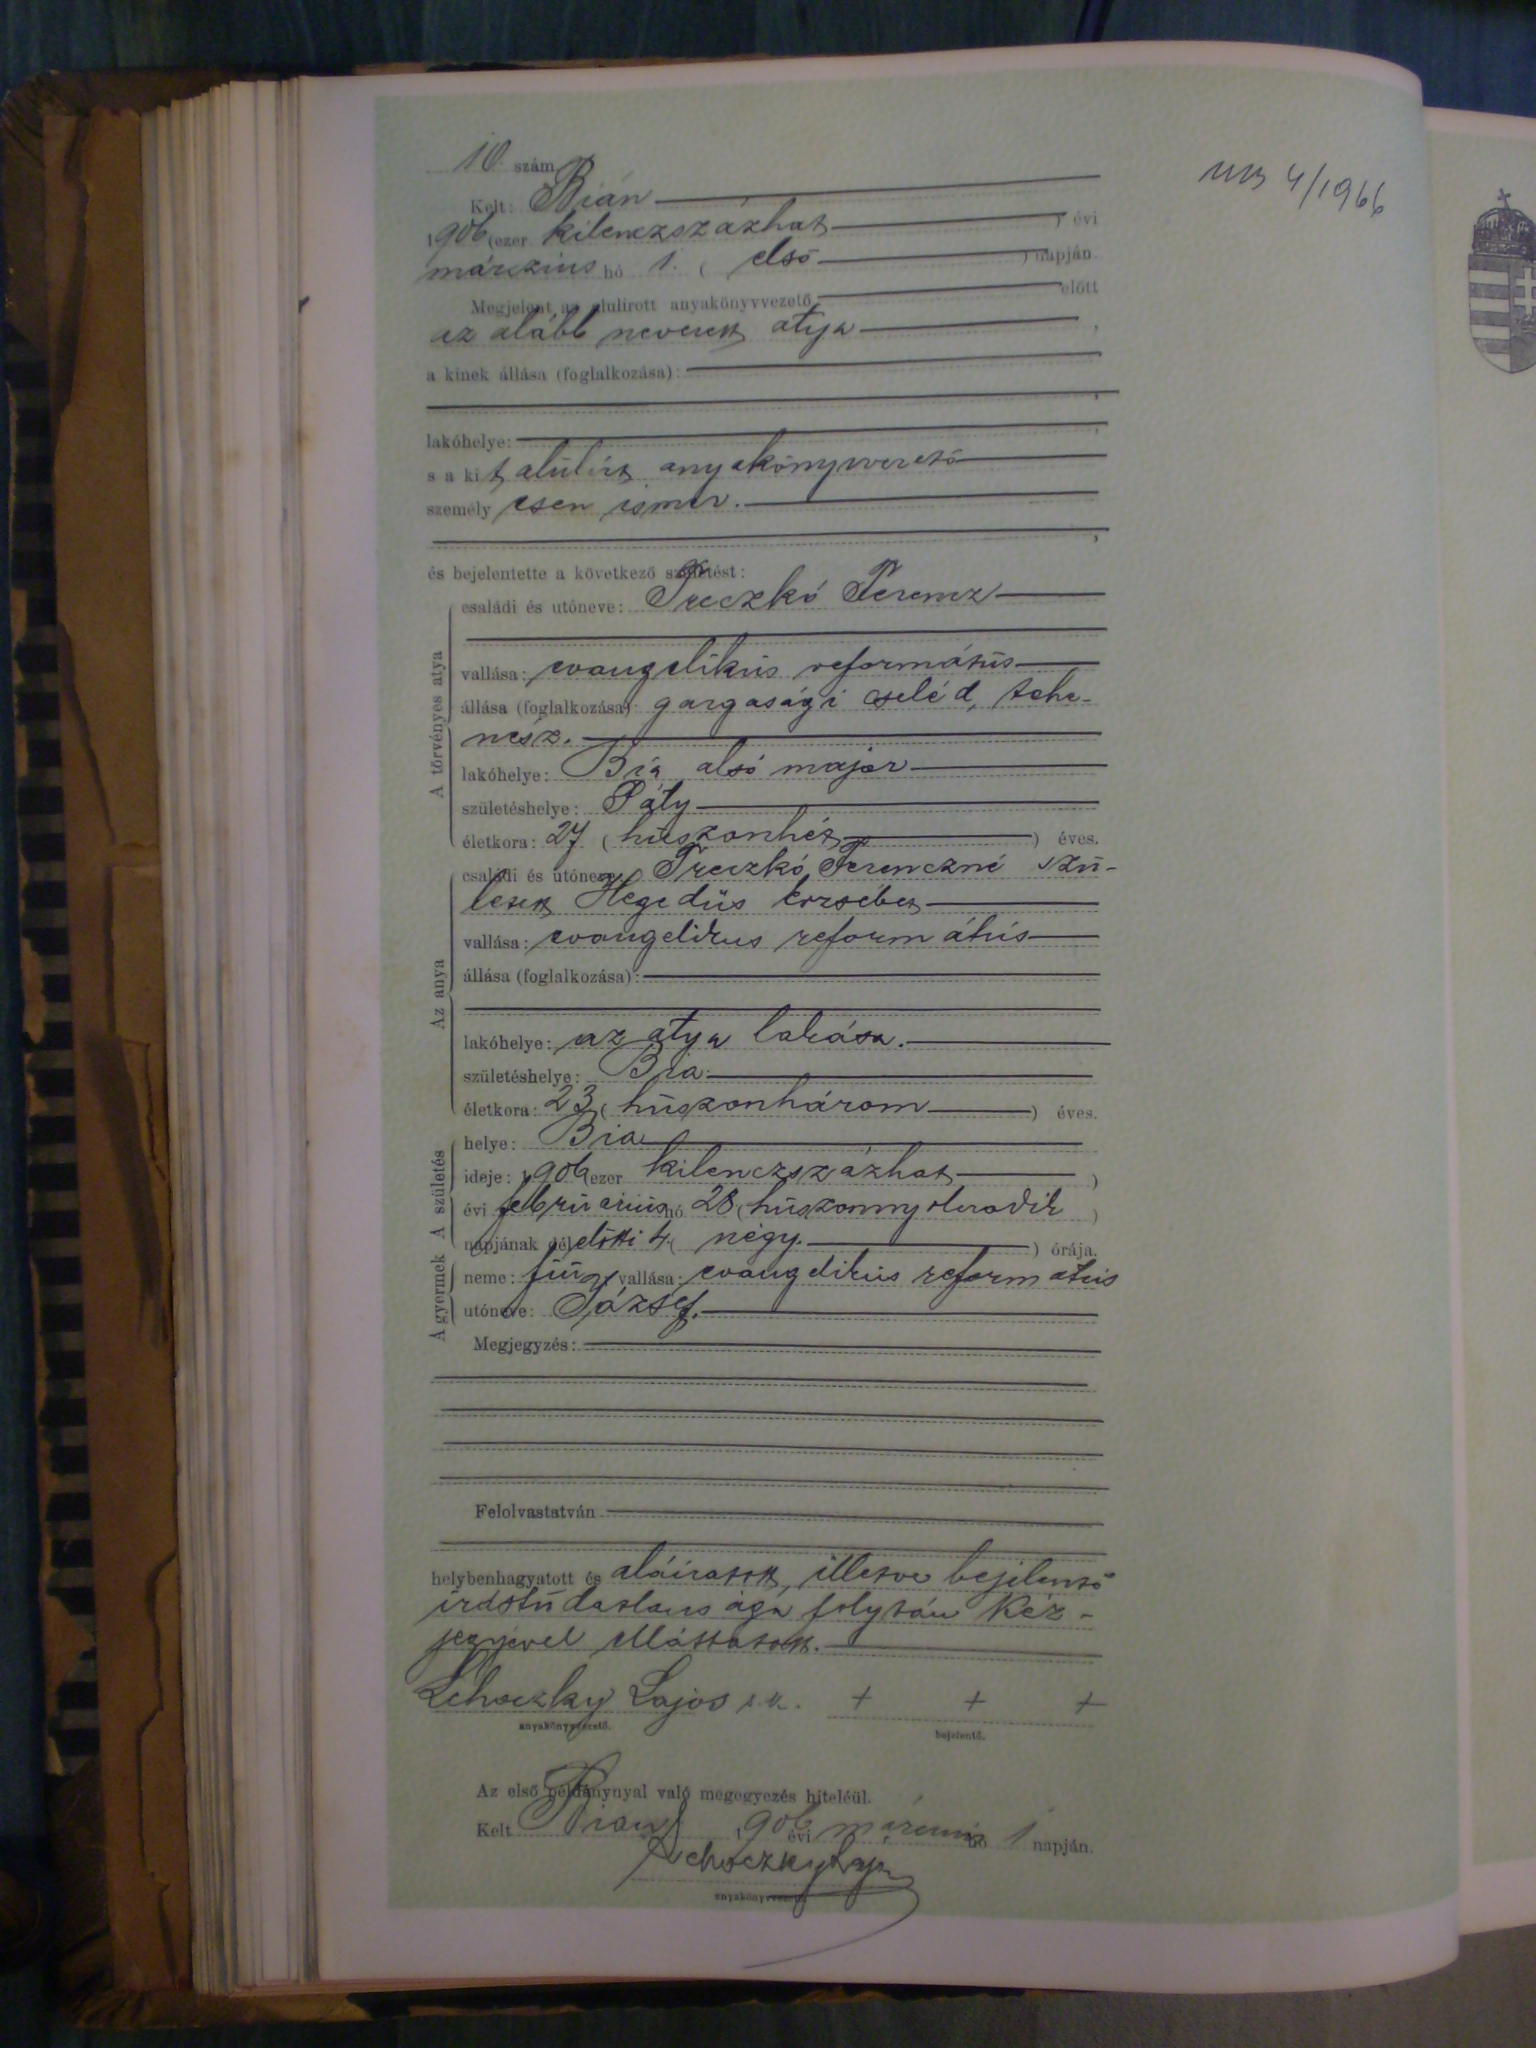 10 szám
MB 4/1966
Kelt: Bián
1906 (ezer kilenczszázhat ) évi
márczius hó 1. ( első ) napján.
Megjelent az alulirott anyakönyvvezető előtt
az alább nevezett atya ,
a kinek állása (foglalkozása):
lakóhelye:
s a kit alulirt anyakönyvvezető
személy esen ismer.
és bejelentette a következő születést:
A törvényes atya
családi és utóneve: Preczkó Ferencz
vallása: evangelikus református
állása (foglalkozása): gazgasági cseléd, tehe-
nész.
lakóhelye: Bia alsó major
születéshelye: Páty
életkora: 27 ( huszonhét ) éves.
Az anya
családi és utóneve: Preczkó Ferenczné szü-
letett Hegedüs Erzsébet
vallása: evangelikus református
állása (foglalkozása):
lakóhelye: az atya lakása.
születéshelye: Bia
életkora: 23 ( huszonhárom ) éves.
A születés
helye: Bia
ideje: 1906 (ezer kilenczszázhat )
évi február​ius hó 28 ( huszonnyolczadik )
napjának délelőtti 4 ( négy. ) órája.
A gyermek
neme: fiú vallása: evangelikus református
utóneve: József.
Megjegyzés:
Felolvastatván
helybenhagyatott és aláiratott, illetve bejelentő
irdstudatlansága folytán kéz-
jegyével elláttatott.
Lehoczky Lajos s.k. + + +
anyakönyvvezető. bejelentő.
Az első példánynyal való megegyezés hiteléül.
Kelt Bián 1906 évi márczius hó 1 napján.
Lehoczky Lajos
anyakönyvvezető.